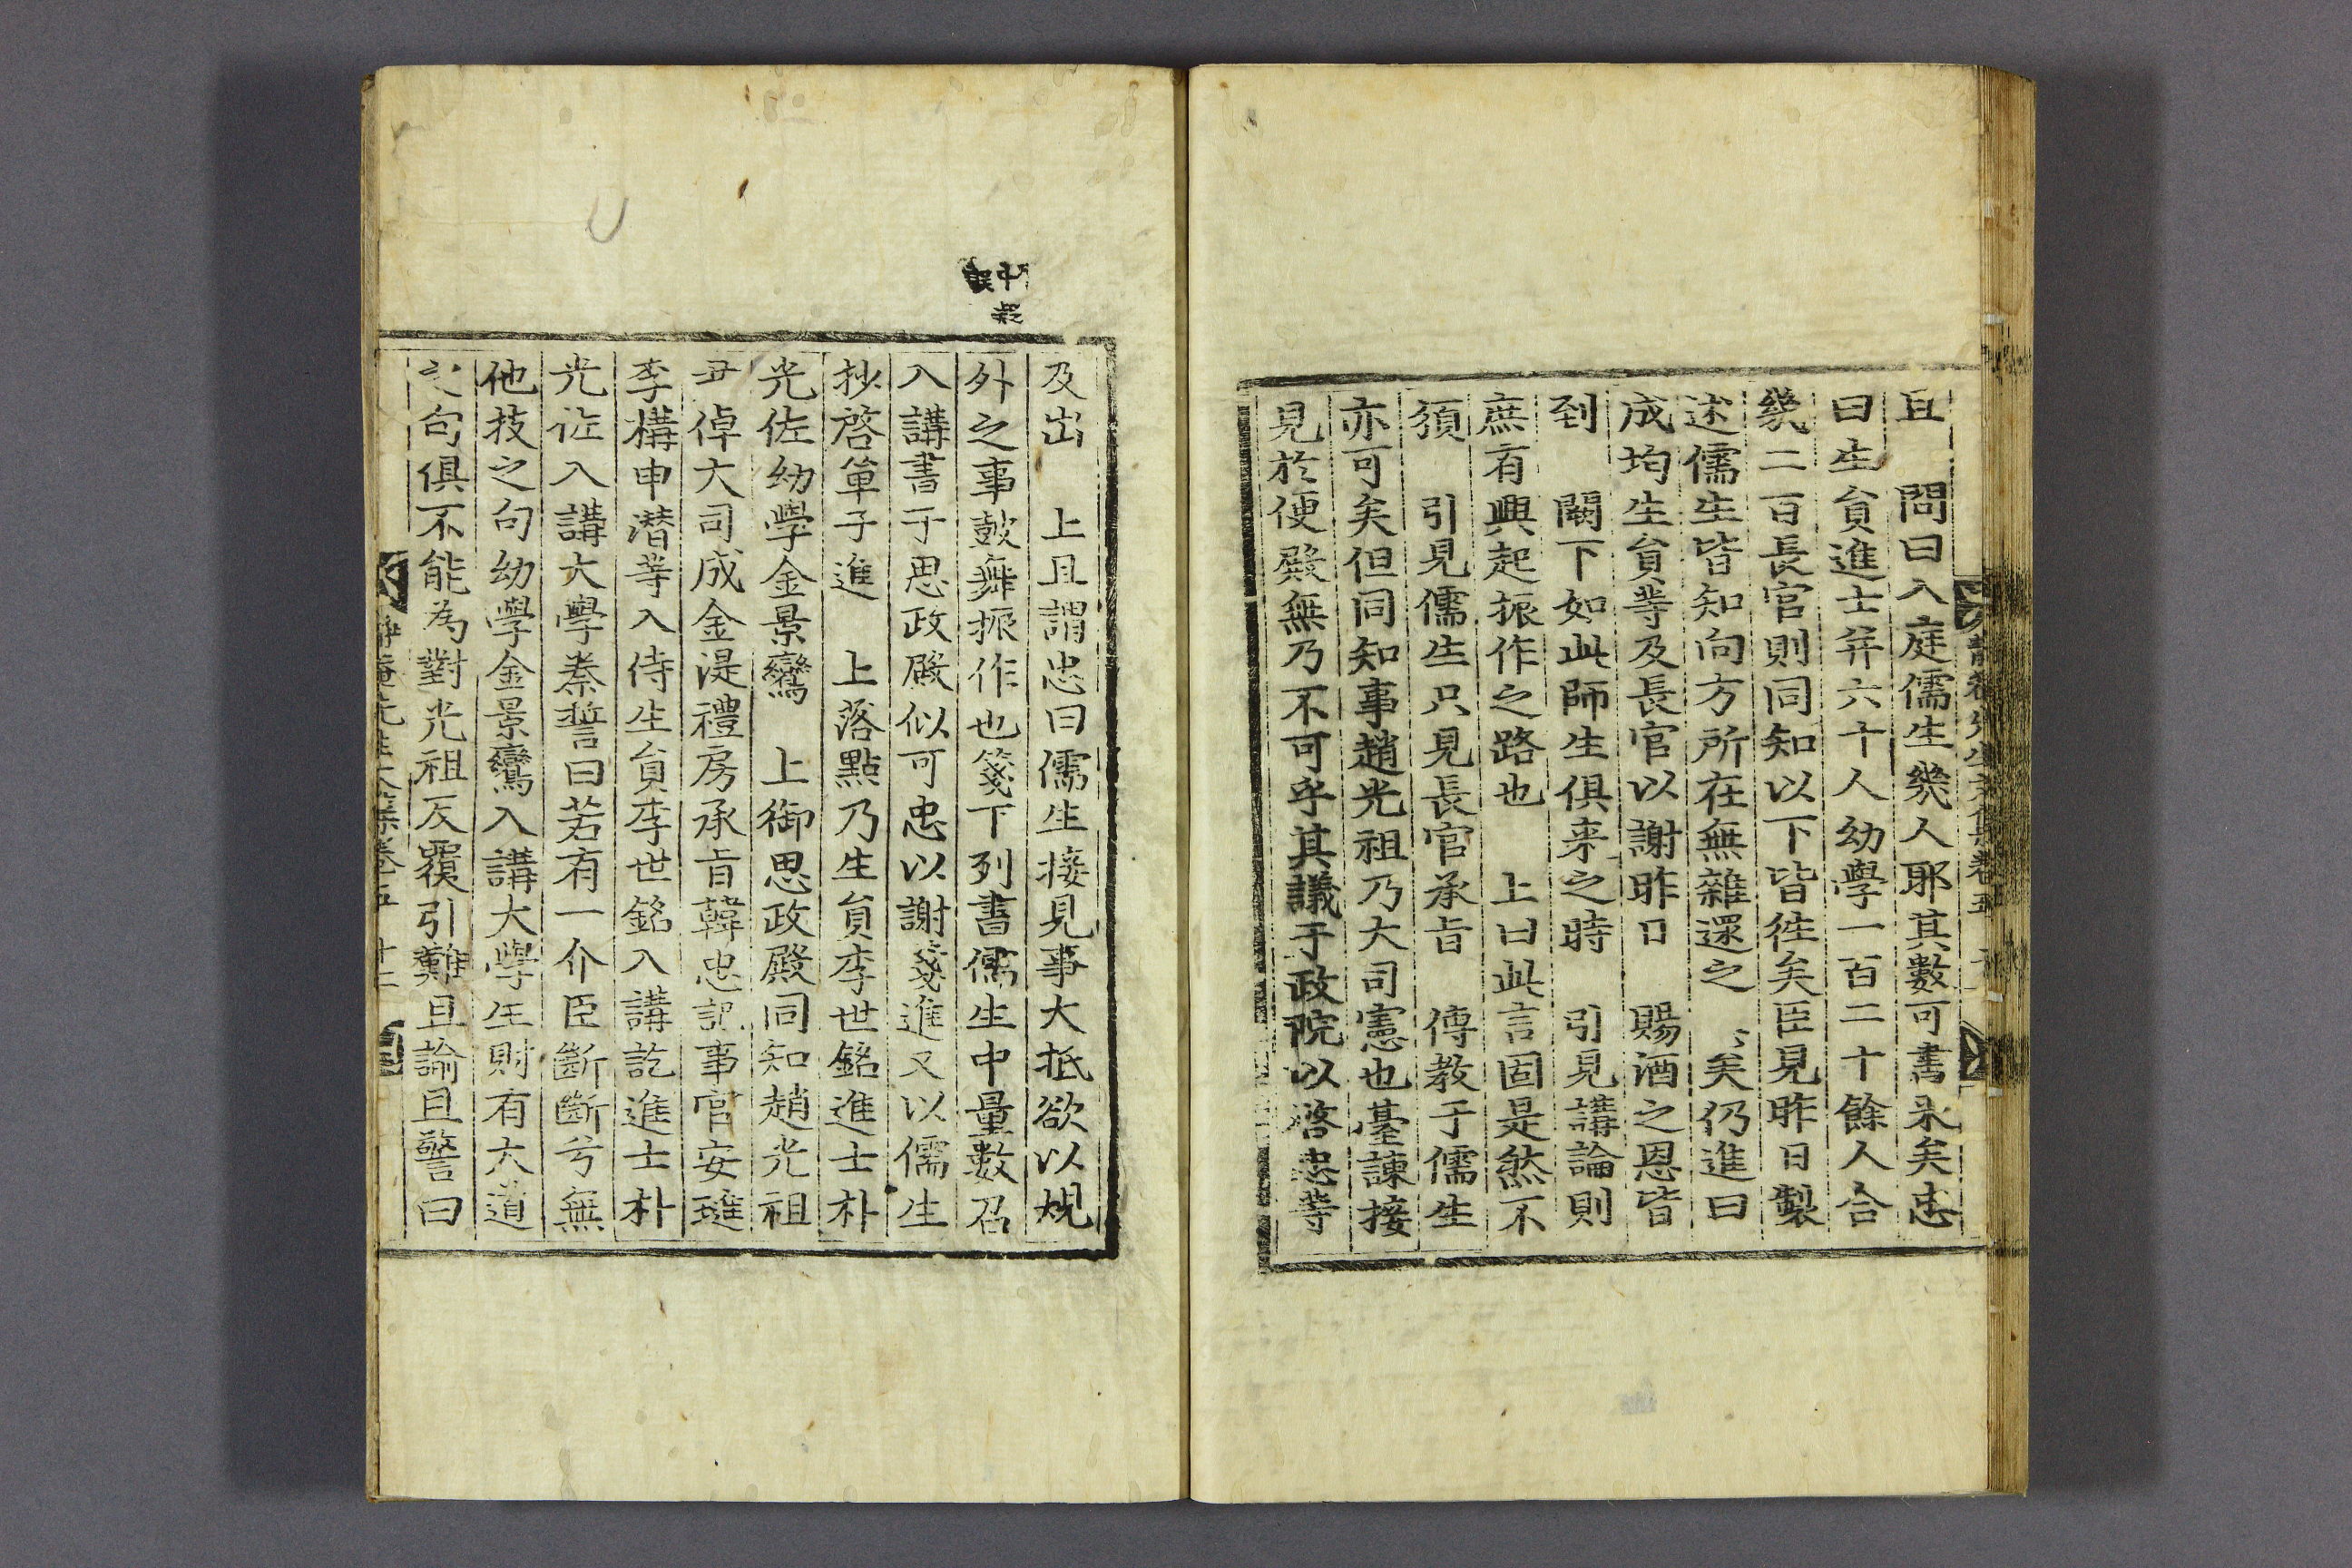 且 問曰入庭儒生幾人耶其數可書来矣忠
曰生貟進士并六十人幼學一百二十餘人合
幾二百長官則同知以下皆徃矣臣見昨日製
述儒生皆知向方所在無雜還之 矣仍進曰
成均生貟等及長官以謝昨日 賜酒之恩皆
到 闕下如此師生俱来之時 引見講論則
庶有興起振作之路也 上曰此言固是然不
須 引見儒生只見長官承旨 傳教于儒生
亦可矣但同知事趙光祖乃大司憲也䑓諫接
見於便殿無乃不可乎其議于政院以啓忠等
及出 上且謂忠曰儒生接見事大抵欲以規
外之事鼓舞振作也箋下列書儒生中量數召
入講書于思政殿似可忠以謝箋進又以儒生
抄啓單子進 上落點乃生貟李世銘進士朴
光佐幼學金景鸞 上御思政殿同知趙光祖
尹倬大司成金湜禮房承旨韓忠記事官安璡
李構申潜等入侍生貟李世銘入講訖進士朴
光佐入講大學秦誓曰若有一介臣斷斷兮無
他技之句幼學金景鸞入講大學生財有大道
之句俱不能為對光祖反覆引難且諭且警曰
靜菴先生文集卷五 十二